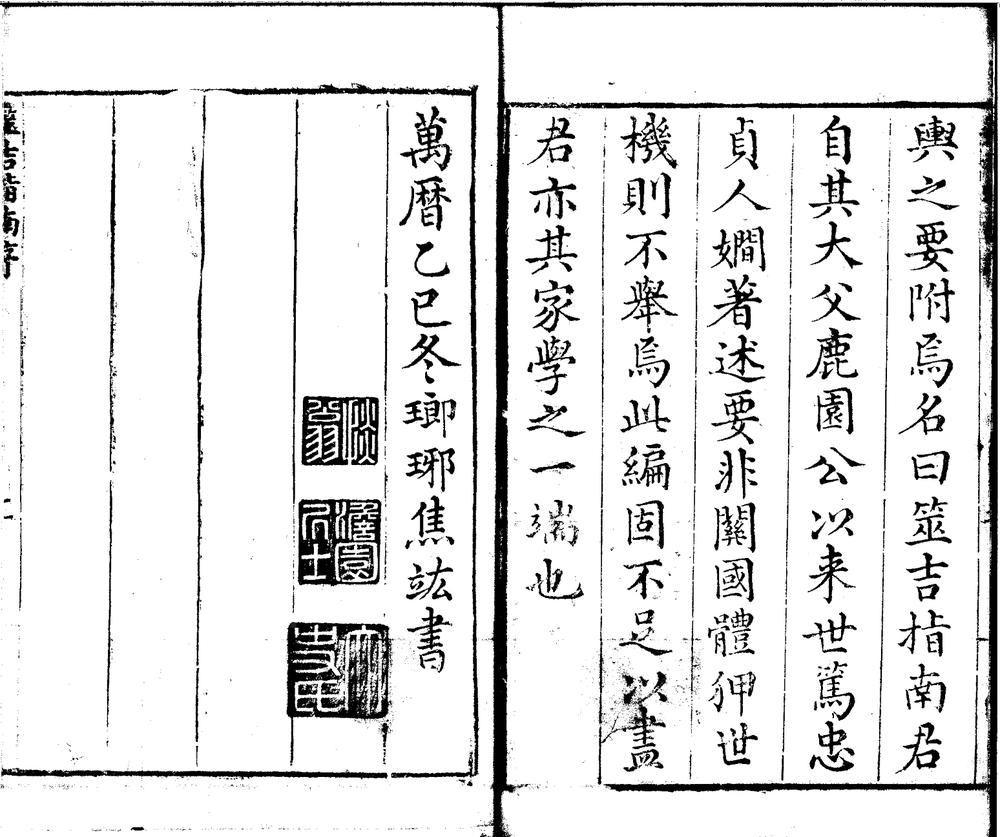 輿之要附焉名曰筮吉指南君
自其大父鹿園公以来世篤忠
貞人嫺著述要非關國體狎世
機則不舉焉此編固不足以盡
君亦其家學之一端也
萬暦乙巳冬瑯琊焦竑書
澹園居士
太史氏
筮吉指南序